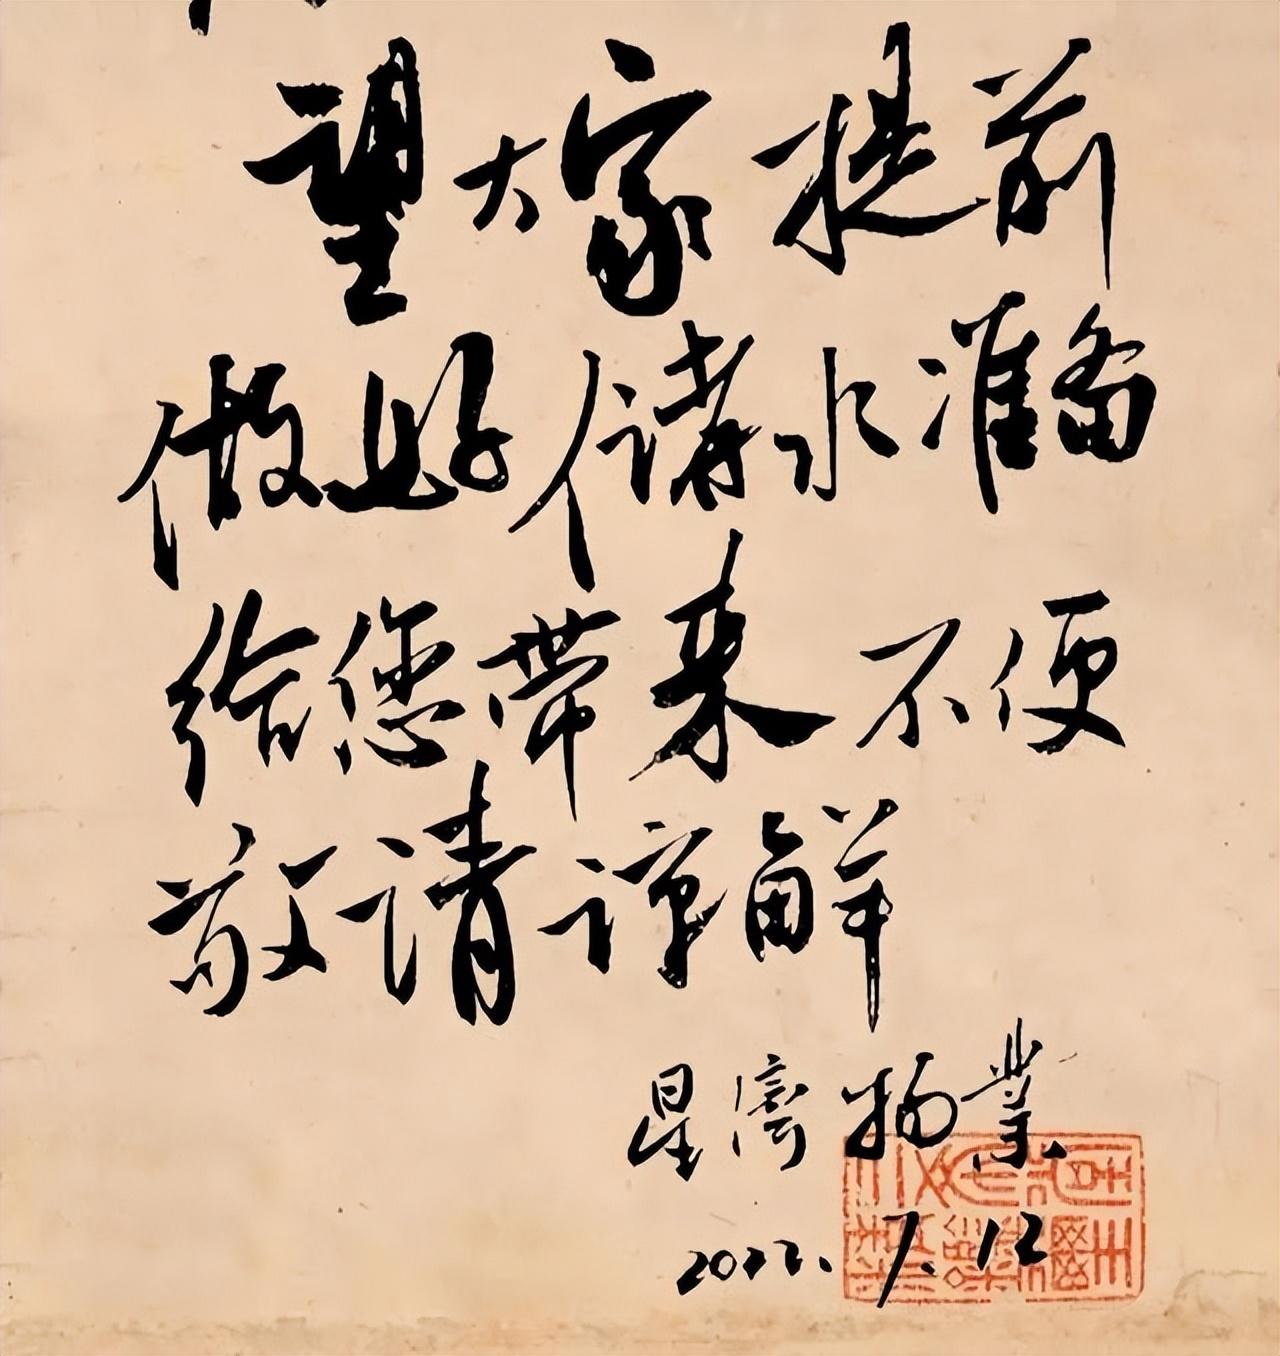 望大家提前
做好储水准备
给您带来不便
敬请谅解
星湾物業
2022.7.12